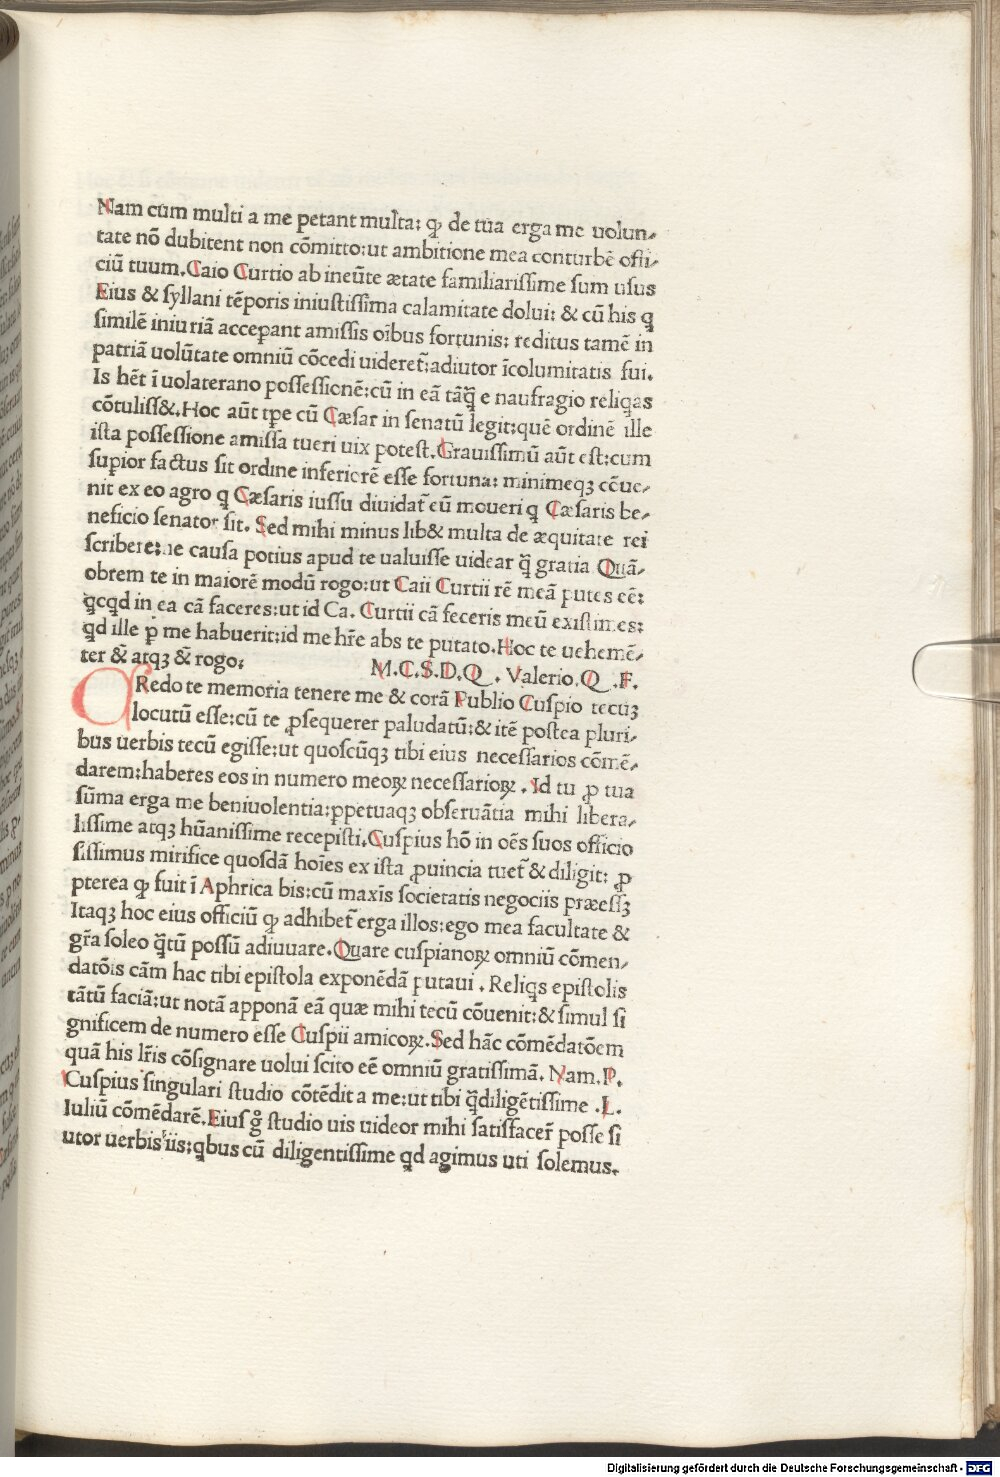 Nam cum multi a me petant multa: ꝙ de tua erga me uolun⸗
tate nō dubitent non cōmitto: ut ambitione mea conturbē offi⸗
ciū tuum. Caio Curtio ab ineūte ætate familiarissime sum usus
Eius & syllani tēporis iniustissima calamitate dolui: & cū his q
similē iniuriā accepant amissis oībus fortunis: reditus tamē in
patriā uolūtate omniū cōcedi uideret̄: adiutor īcolumitatis fui.
Is hēt ī uolaterano possessionē: cū in eā tāq̄ e naufragio reliqas
cōtuliss&. Hoc aūt tpe cū Cæsar in senatū legit: quē ordinē ille
ista possessione amissa tueri uix potest. Grauissimū aūt est: cum
supior factus sit ordine inferiorē esse fortuna: minimeqꝫ cēue⸗
nit ex eo agro q Cæsaris iussu diuidat̄ eū moueri q Cæsaris be⸗
neficio senator sit. Sed mihi minus lib& multa de æquitate rei
scribere: ne causa potius apud te ualuisse uidear q̄ gratia Quā⸗
obrem te in maiorē modū rogo: ut Caii Curtii rē meā putes eē:
qcqd in ea cā faceres: ut id Ca. Curtii cā feceris meū existimes:
qd ille p me habuerit: id me hr̄e abs te putato. Hoc te uehemē⸗
ter &̄ atqꝫ &̄ rogo:
M. C. S. D. Q. Valerio. Q. F.
CRedo te memoria tenere me & corā Publio Cuspio tecuꝫ
locutū esse: cū te ꝓsequerer paludatū: & itē postea pluri⸗
bus uerbis tecū egisse: ut quoscūqꝫ tibi eius necessarios cōmē⸗
darem: haberes eos in numero meoꝝ necessarioꝝ. Id tu ꝓ tua
sūma erga me beniuolentia: ppetuaqꝫ obseruātia mihi libera⸗
lissime atqꝫ hūanissime recepisti. Cuspius hō in oēs suos officio
sissimus mirifice quosdā hoīes ex ista ꝓuincia tuet̄ & diligit: ꝓ
pterea ꝙ fuit ī Aphrica bis: cū maxīs societatis negociis præessꝫ
Itaqꝫ hoc eius officiū ꝙ adhibet̄ erga illos: ego mea facultate &
gr̄a soleo q̄tū possū adiuuare. Quare cuspianoꝝ omniū cōmen⸗
datōis cām hac tibi epistola exponēdā putaui. Reliqs epistolis
tātū faciā: ut notā apponā eā quæ mihi tecū cōuenit: & simul si
gnificem de numero esse Cuspii amicoꝝ. Sed hāc cōmēdatōem
quā his lr̄is cōsignare uolui scito eē omniū gratissimā. Nam. P.
Cuspius singulari studio cōtēdit a me: ut tibi q̄diligētissime. L.
Iuliū cōmēdarē. Eius g̊ studio uis uideor mihi satisfacer̄ posse si
utor uerbis iis: qbus cū diligentissime qd agimus uti solemus.
Digitalisierung gefördert durch die Deutsche Forschungsgemeinschaft - DFG